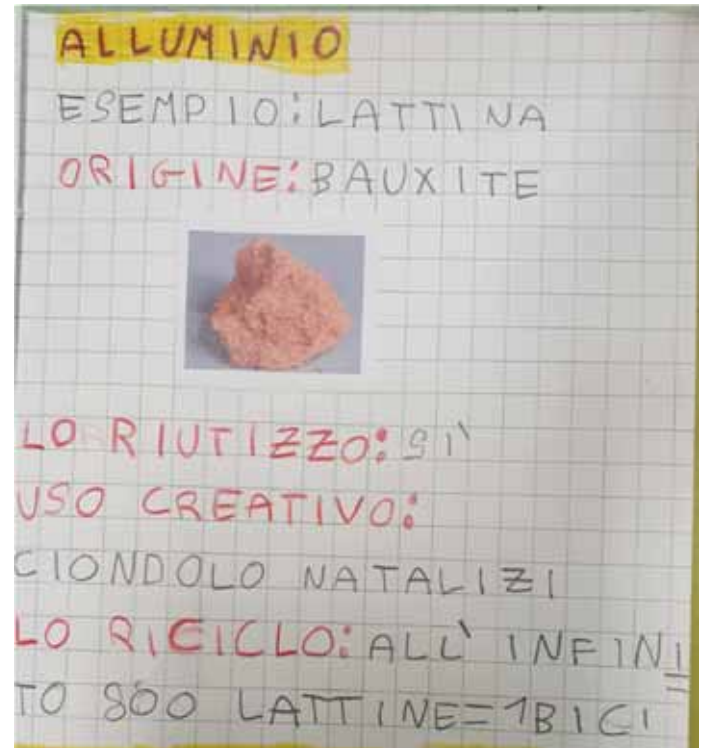 ALLUMINIO
ESEMPIO: LATTINA
ORIGINE: BAUXITE
LO RIUTIZZO: SI'
USO CREATIVO:
CIONDOLO NATALIZI
LO RICICLO: ALL' INFINI
TO 800 LATTINE=1BICI